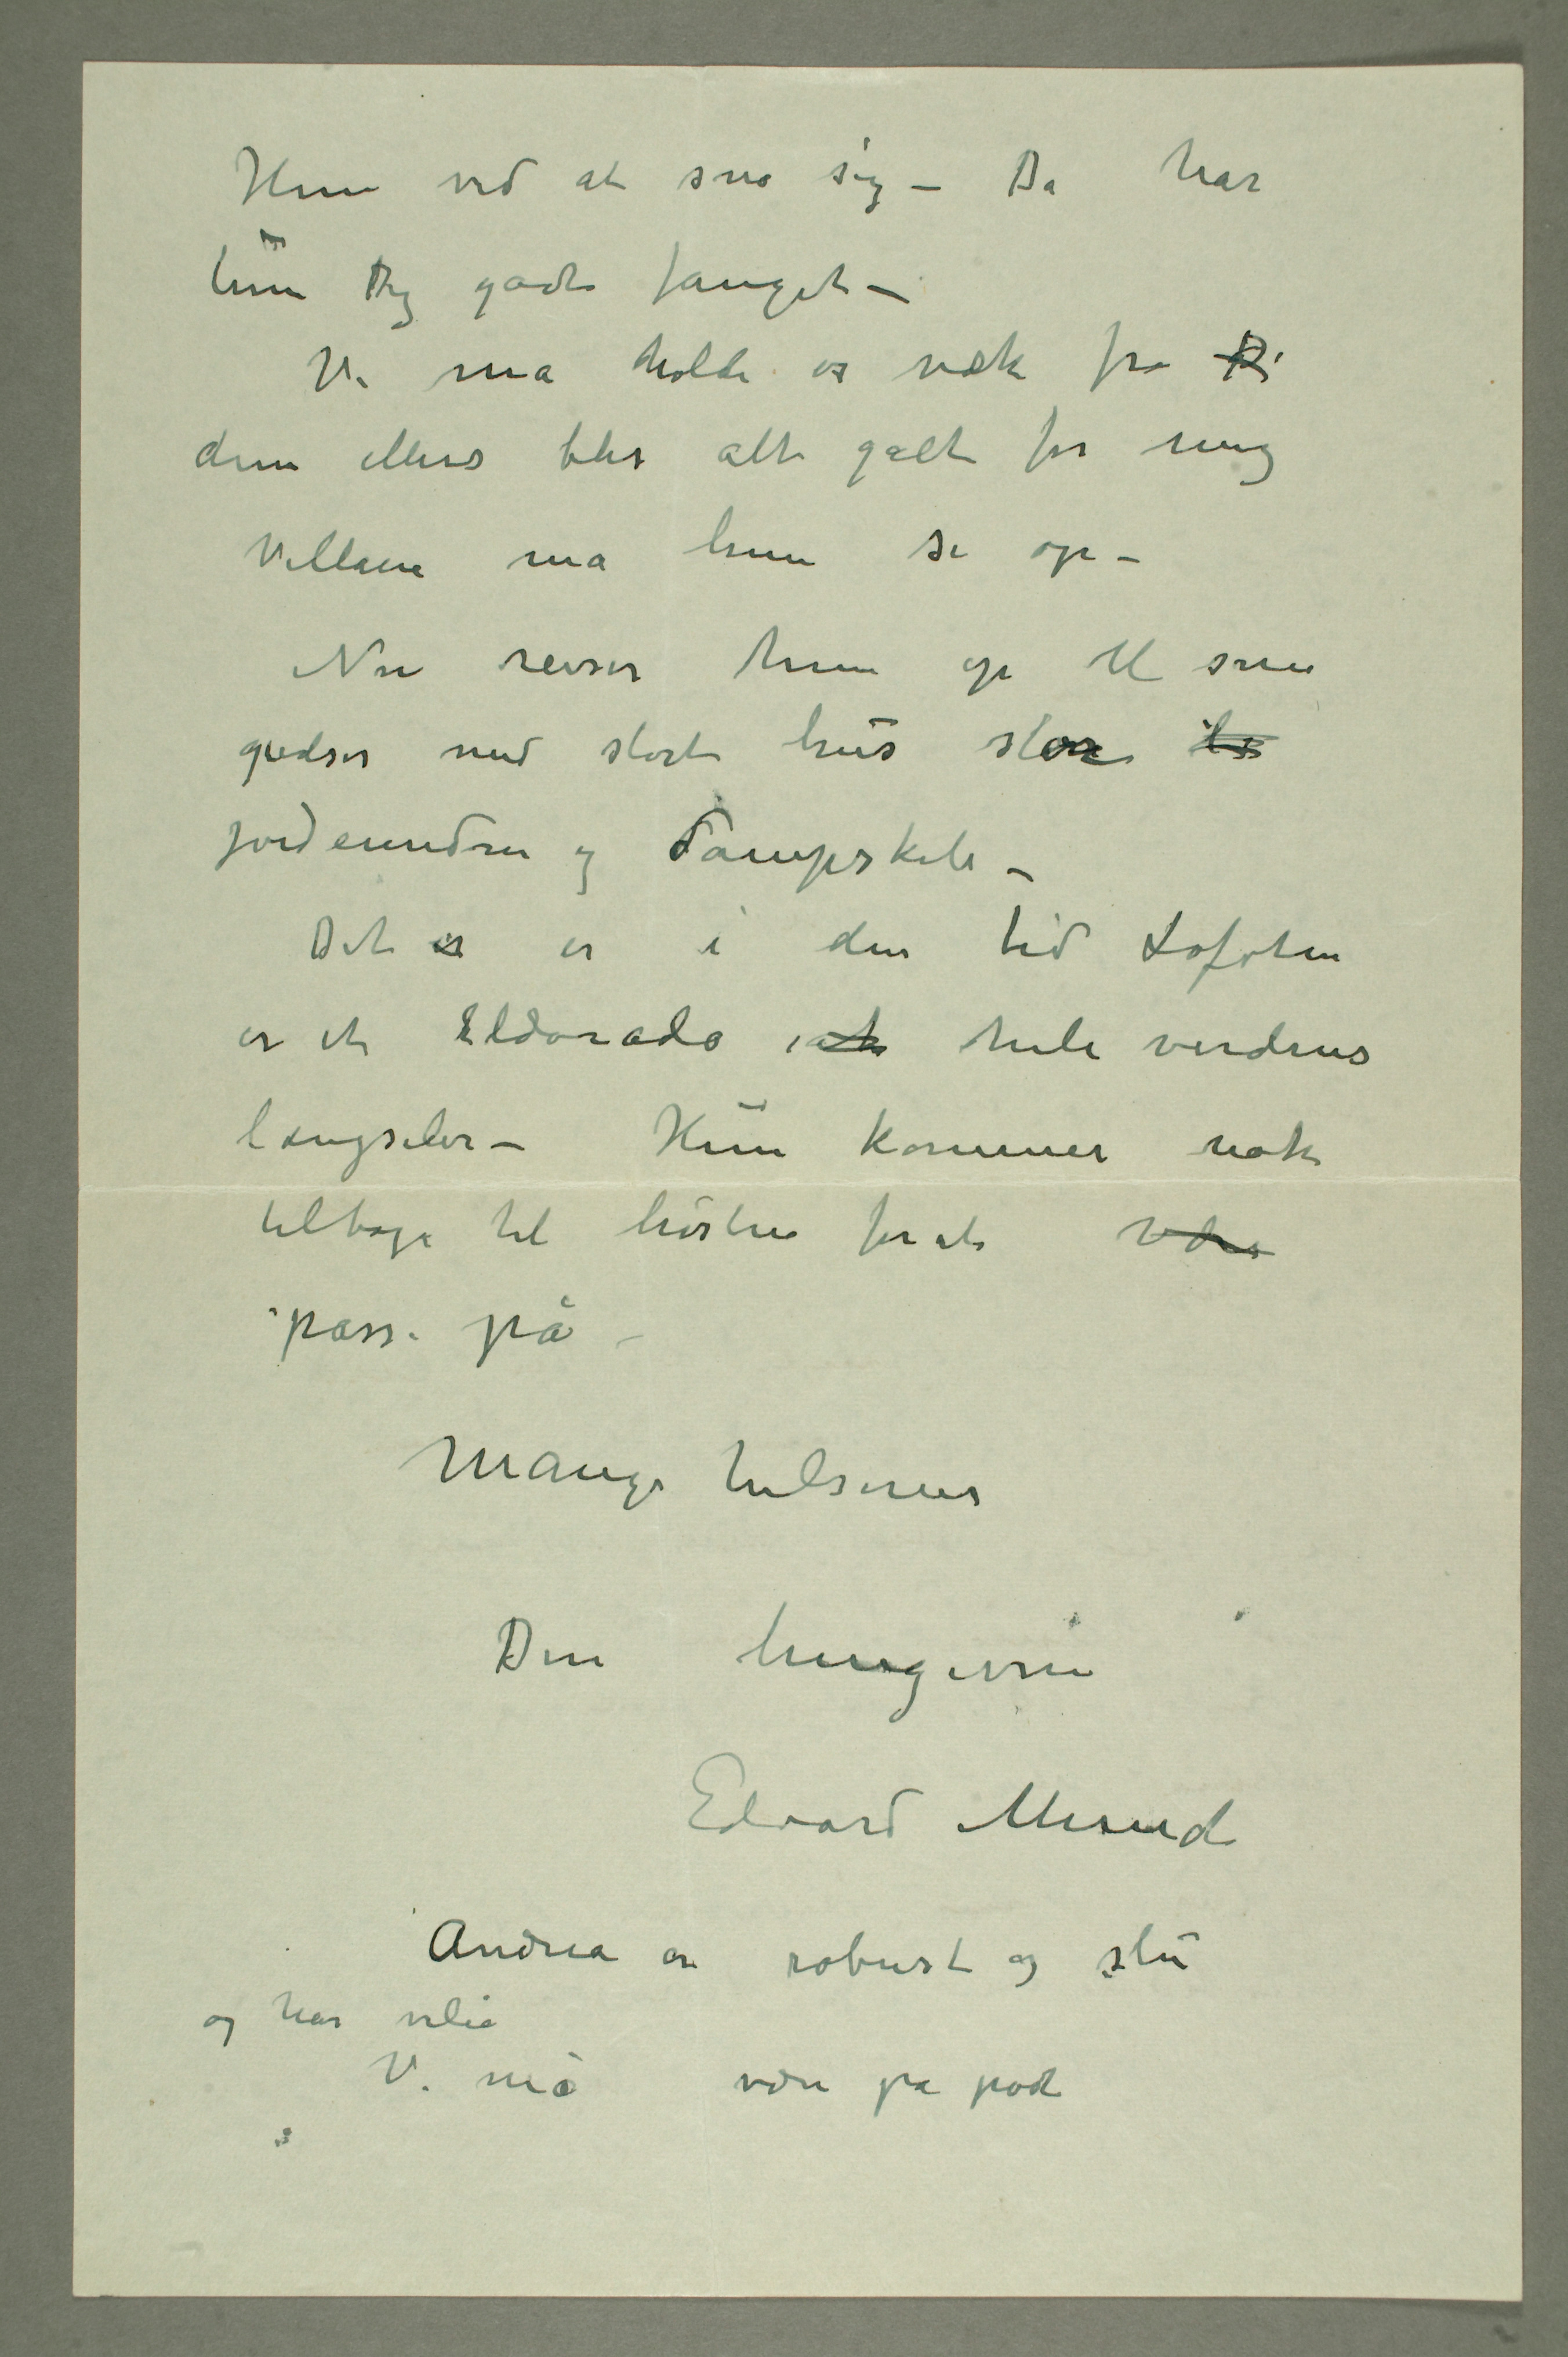 Hun ved at sno sig – Da har
hun Dig godt fanget –
Vi må holde os væk fra Di
dem ellers blir alt galt for mig
Villaen må hun se op –
Nu reiser hun op til sine
godser med stort hus store
jordeiendom og Dampskib –
Det er er i den tid Lofoten
er et Eldorado hele verdens
længseler – Hun kommer nok
tilbage til høsten for at være
passe på –
Mange hilsener
Din hengivne
Edvard Munch
Andrea er robust og slu
og har vilie
Vi må være på post